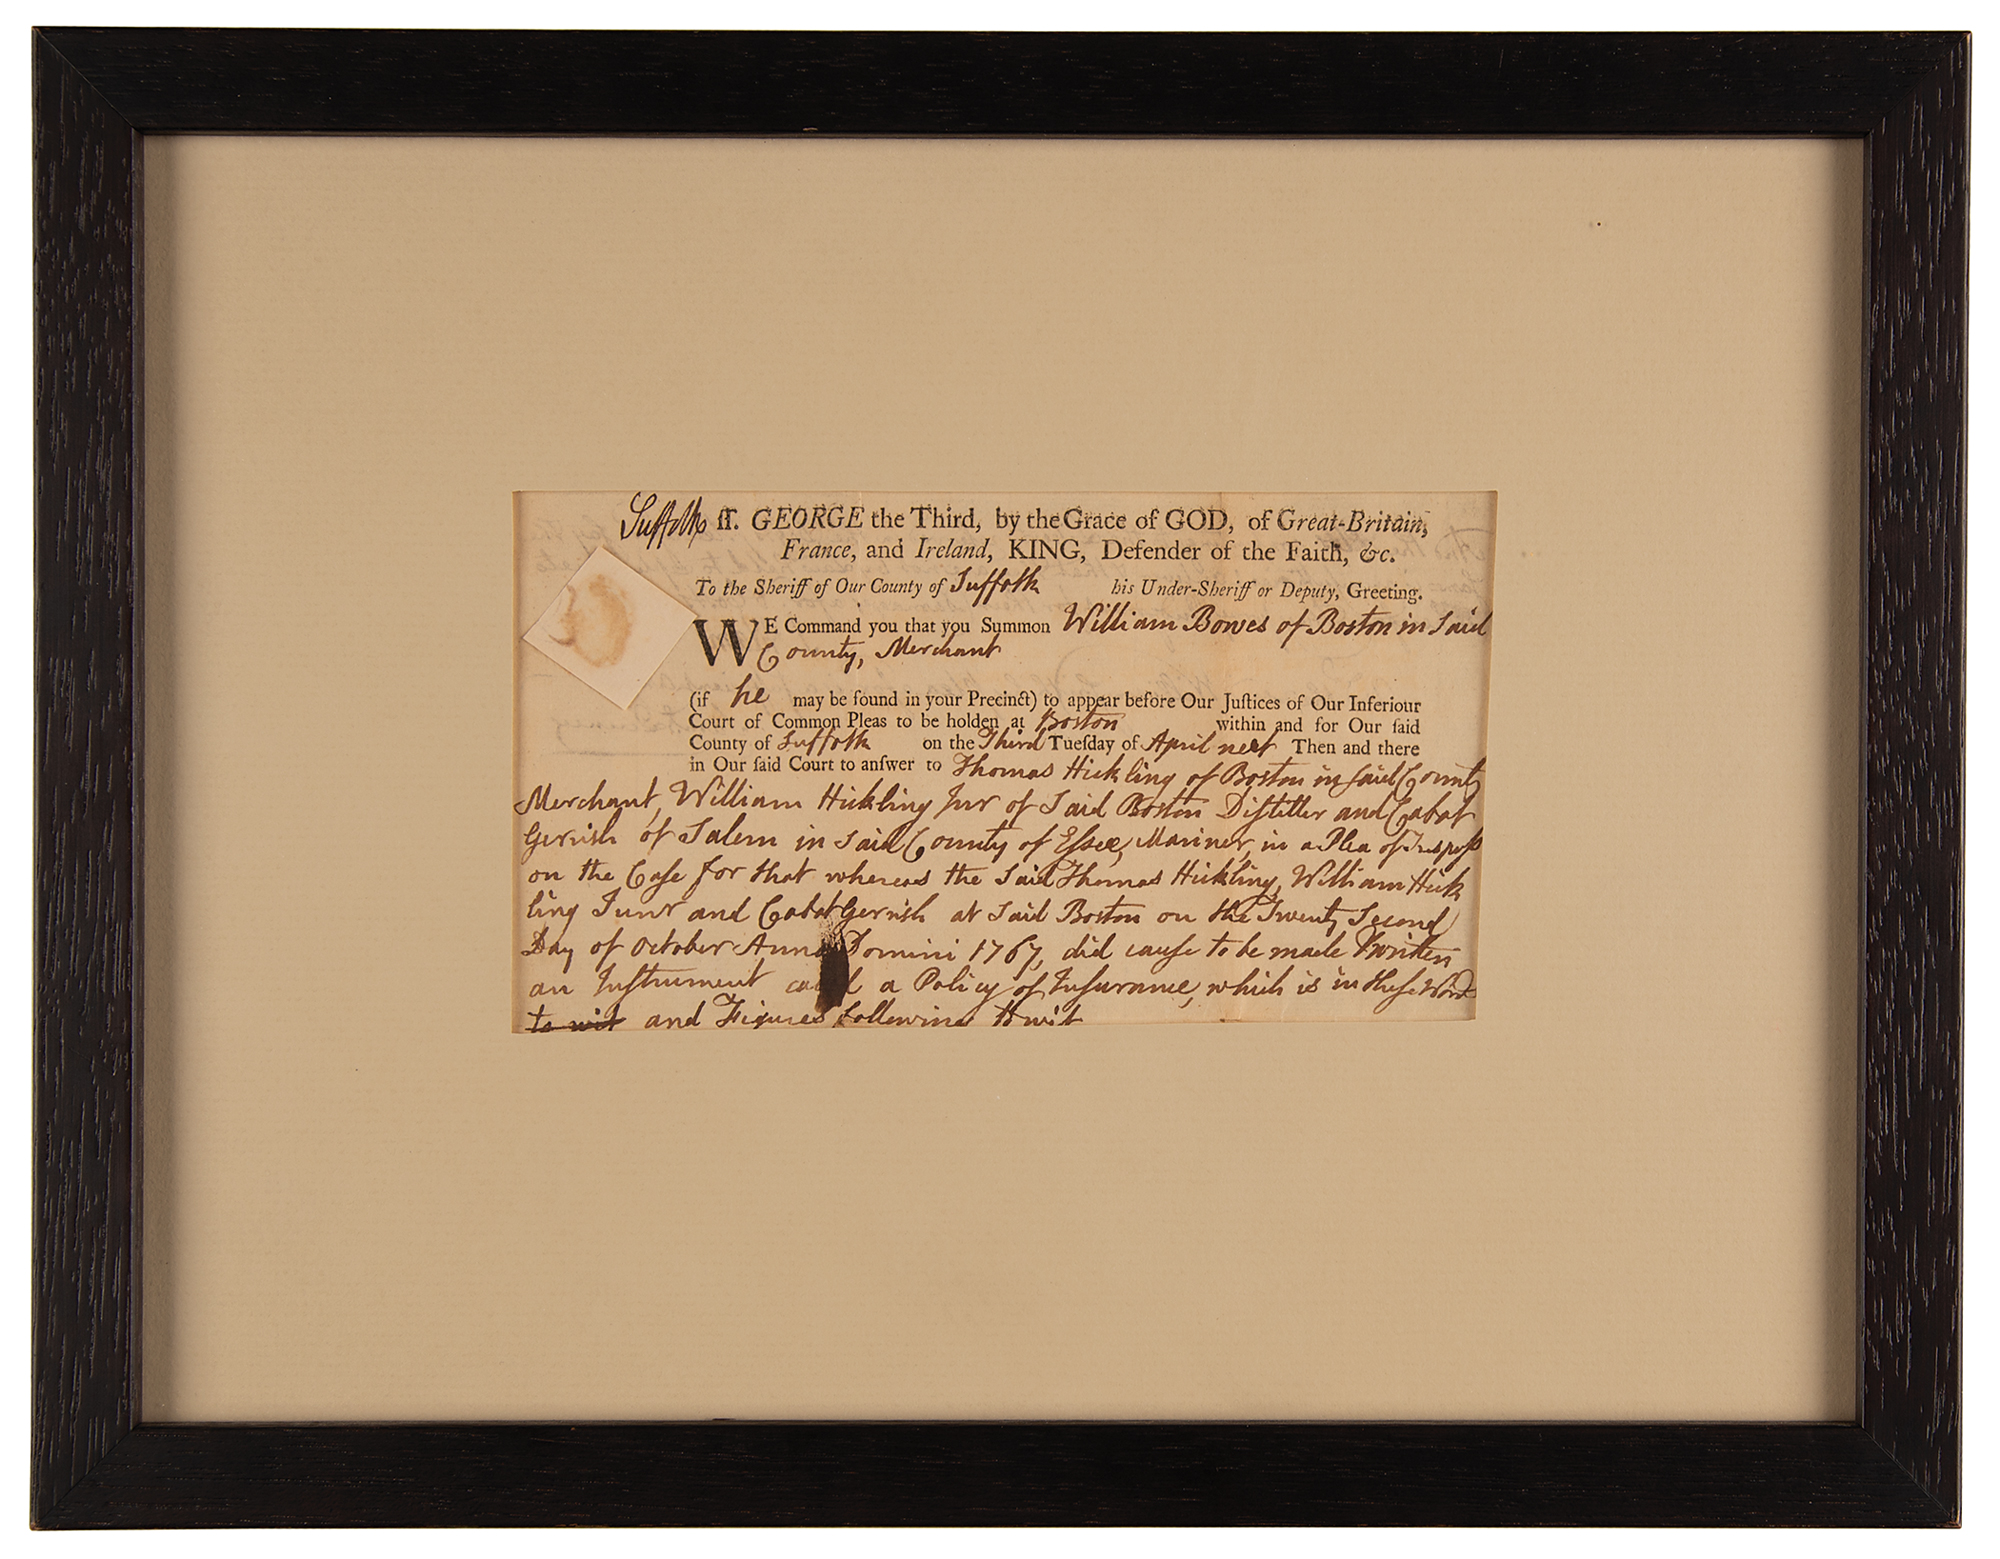 Suffolk ſſ. GEORGE the Third, by the Grace of GOD, of Great-Britain,
France, and Ireland, KING, Defender of the Faith, &c.
To the Sheriff of Our County of Suffolk his Under-Sheriff or Deputy, Greeting.
WE Command you that you Summon William Bowes of Boston in Said
County, Merchant
(if he may be found in your Precinct) to appear before Our Juſtices of Our Inferiour
Court of Common Pleas to be holden at Boston within and for Our ſaid
County of Suffolk on the Third Tueſday of April next Then and there
in Our ſaid Court to anſwer to Thomas Hickling of Boston in ſaid County
Merchant, William Hickling Junr of Said Boston Diſtiller and Cabot
Gerrish of Salem in Said County of Eſsex, Mariner, in a Plea of Treſpaſs
on the Caſe for that whereas the Said Thomas Hickling, William Hick
ling Junr and Cabot Gerrish at Said Boston on the Twenty Second
Day of October Anno Domini 1767, did cauſe to be made & written
an Inſtrument a Policy of Inſurance, which is in theſe Words
to wit and Figures following to wit